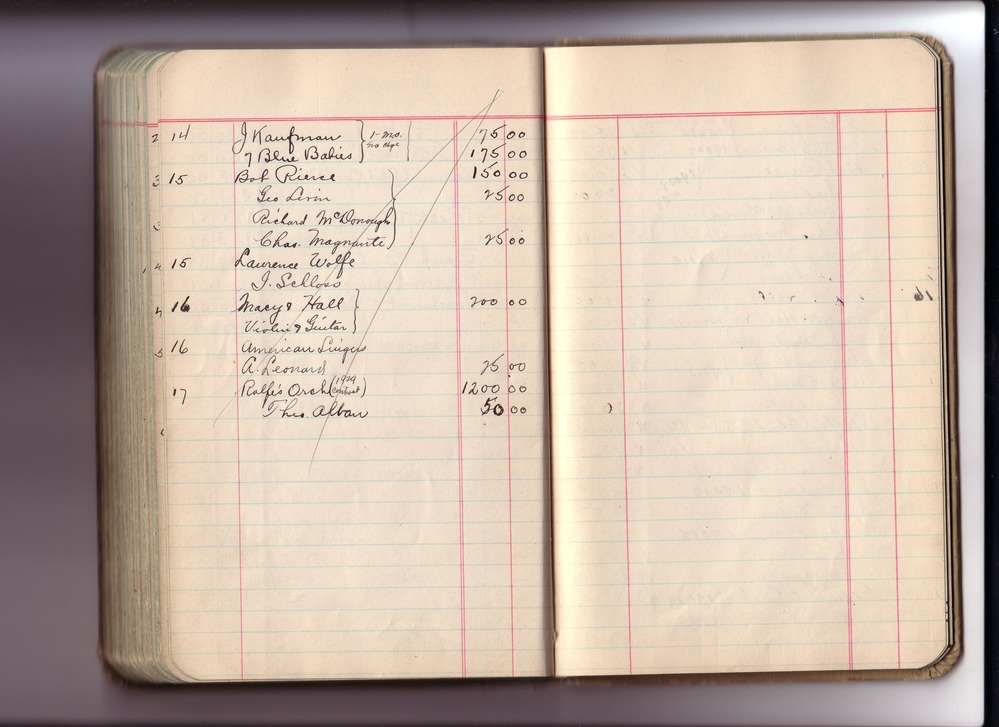 2 14 J Kaufman } 1-mo. 75 00
7 Blue Babies } no dge 175 00
3 15 Bob Pierce 150 00
Geo Livin 25 00
3 Richard McDonough
Chas. Magnante 25 00
4 15 Laurence Wolfe
J. Schloss
4 16 Macy & Hall } 200 00
Violin & Guitar }
5 16 American Singers
A. Leonard 25 00
17 Rolfe's Orch (1929 contract) 1200 00
Theo. Alban 50 00
16